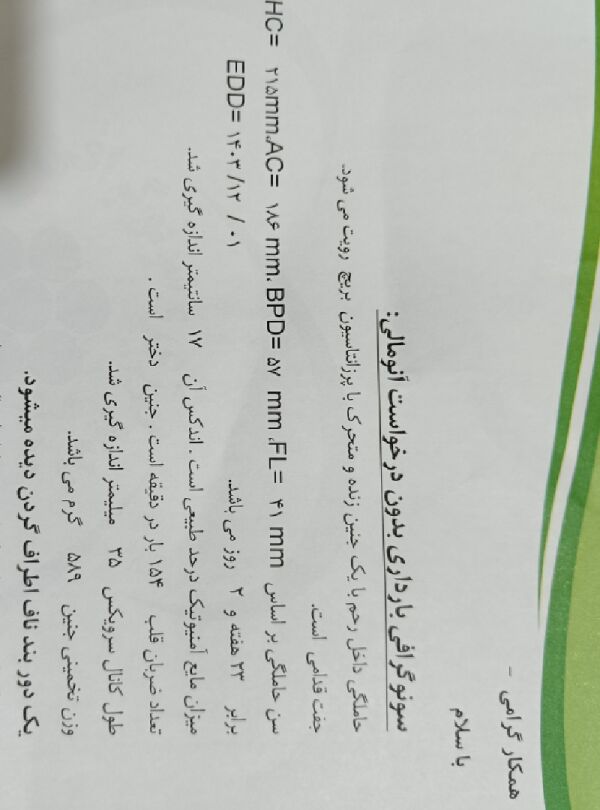 همکار گرامی -
با سلام
سونوگرافی بارداری بدون درخواست آنومالی:
حاملگی داخل رحم با یک جنین زنده و متحرک با پرزانتاسیون بریچ رویت می شود.
جفت قدامی است.
سن حاملگی بر اساس HC= ۲۱۵mm.AC= ۱۸۶ mm. BPD= ۵۷ mm .FL= ۴۱ mm
برابر ۲۳ هفته و ۲ روز می باشد. EDD= ۱۴۰۳/۱۲/۰۱
میزان مایع آمنیوتیک درحد طبیعی است . اندکس آن ۱۷ سانتیمتر اندازه گیری شد.
تعداد ضربان قلب ۱۵۴ بار در دقیقه است . جنین دختر است .
طول کانال سرویکس ۳۵ میلیمتر اندازه گیری شد.
وزن تخمینی جنین ۵۸۹ گرم می باشد.
یک دور بند ناف اطراف گردن دیده میشود.